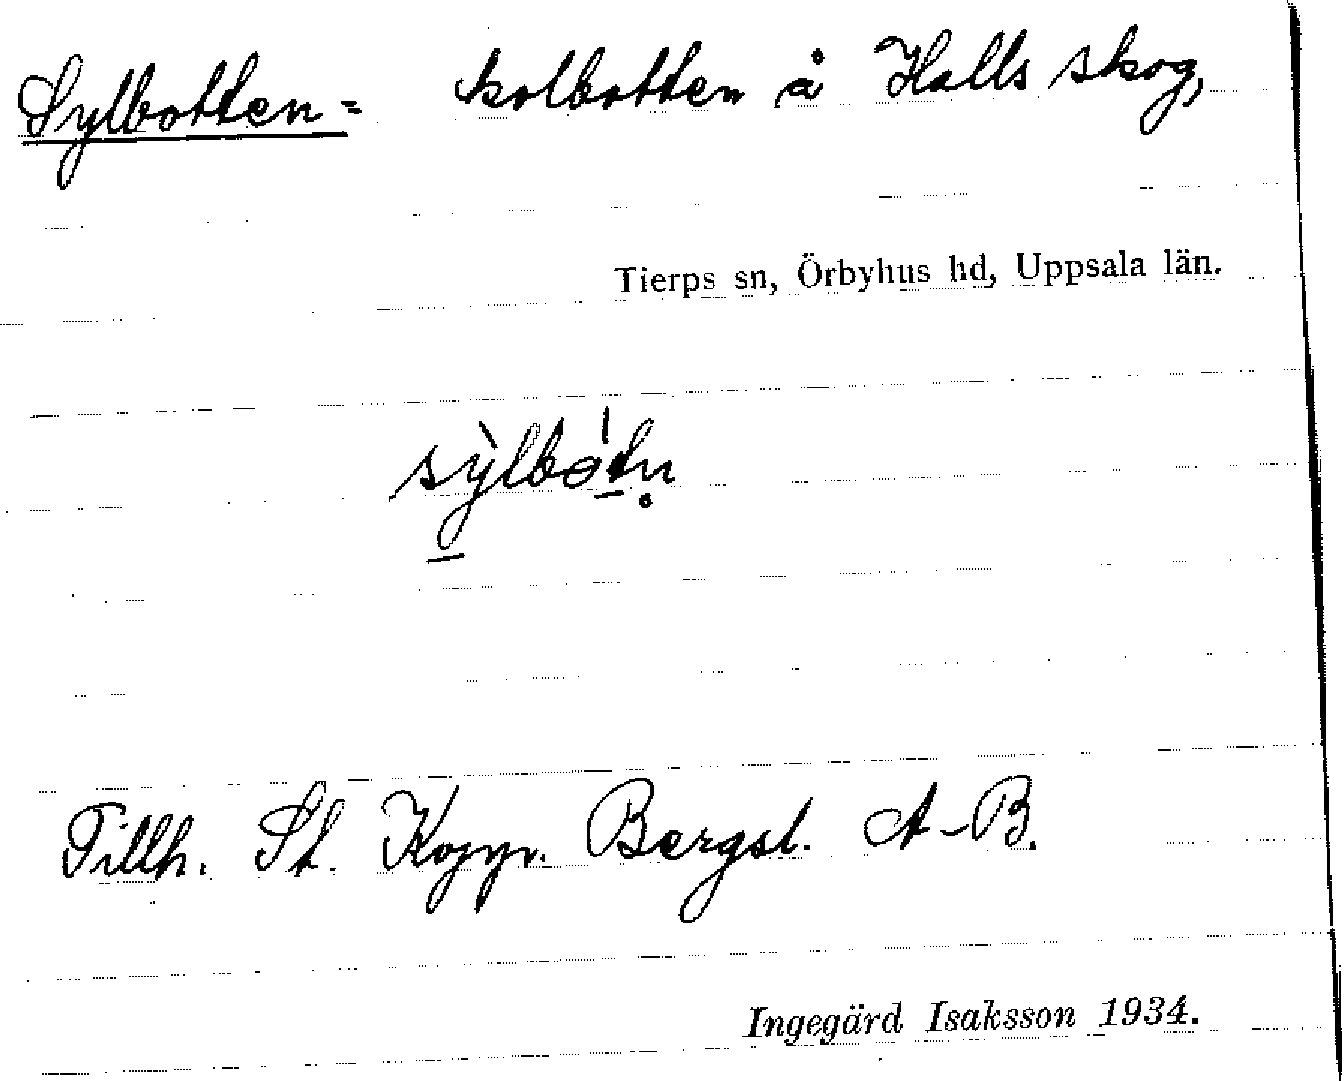 Sylbotten = kolbotten å Halls skog,
Tierps sn, Örbyhus hd, Uppsala län.
sỳlbo̍tn̥
Tillh. St. Kopp. Bergsl. A-B.
Ingegärd Isaksson 1934.